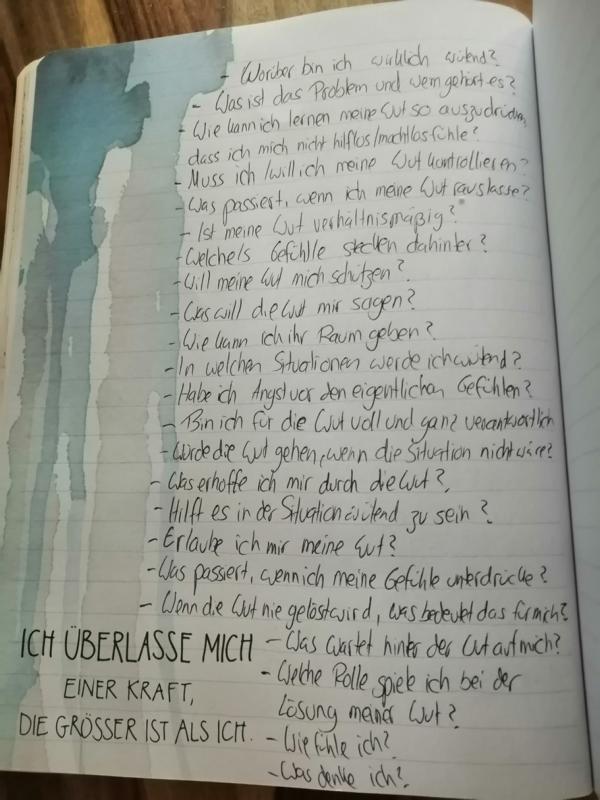 - Worüber bin ich wirklich wütend?
- Was ist das Problem und wem gehört es?
- Wie kann ich lernen meine Wut so auszudrücken,
dass ich mich nicht hilflos/machtlos fühle?
- Muss ich/will ich meine Wut kontrollieren?
- Was passiert, wenn ich meine Wut rauslasse?
- Ist meine Wut verhältnismäßig?
- Welche/s Gefühl/e stecken dahinter?
- Will meine Wut mich schützen?
- Was will die Wut mir sagen?
- Wie kann ich ihr Raum geben?
- In welchen Situationen werde ich wütend?
- Habe ich Angst vor den eigentlichen Gefühlen?
- Bin ich für die Wut voll und ganz verantwortlich
- Würde die Wut gehen, wenn die Situation nicht wäre?
- Was erhoffe ich mir durch die Wut?
- Hilft es in der Situation wütend zu sein?
- Erlaube ich mir meine Wut?
- Was passiert, wenn ich meine Gefühle unterdrücke?
- Wenn die Wut nie gelöst wird, was bedeutet das für mich?
- Was wartet hinter der Wut auf mich?
- Welche Rolle spiele ich bei der
Lösung meiner Wut?
- Wie fühle ich?
- Was denke ich?
ICH ÜBERLASSE MICH
EINER KRAFT,
DIE GRÖSSER IST ALS ICH.